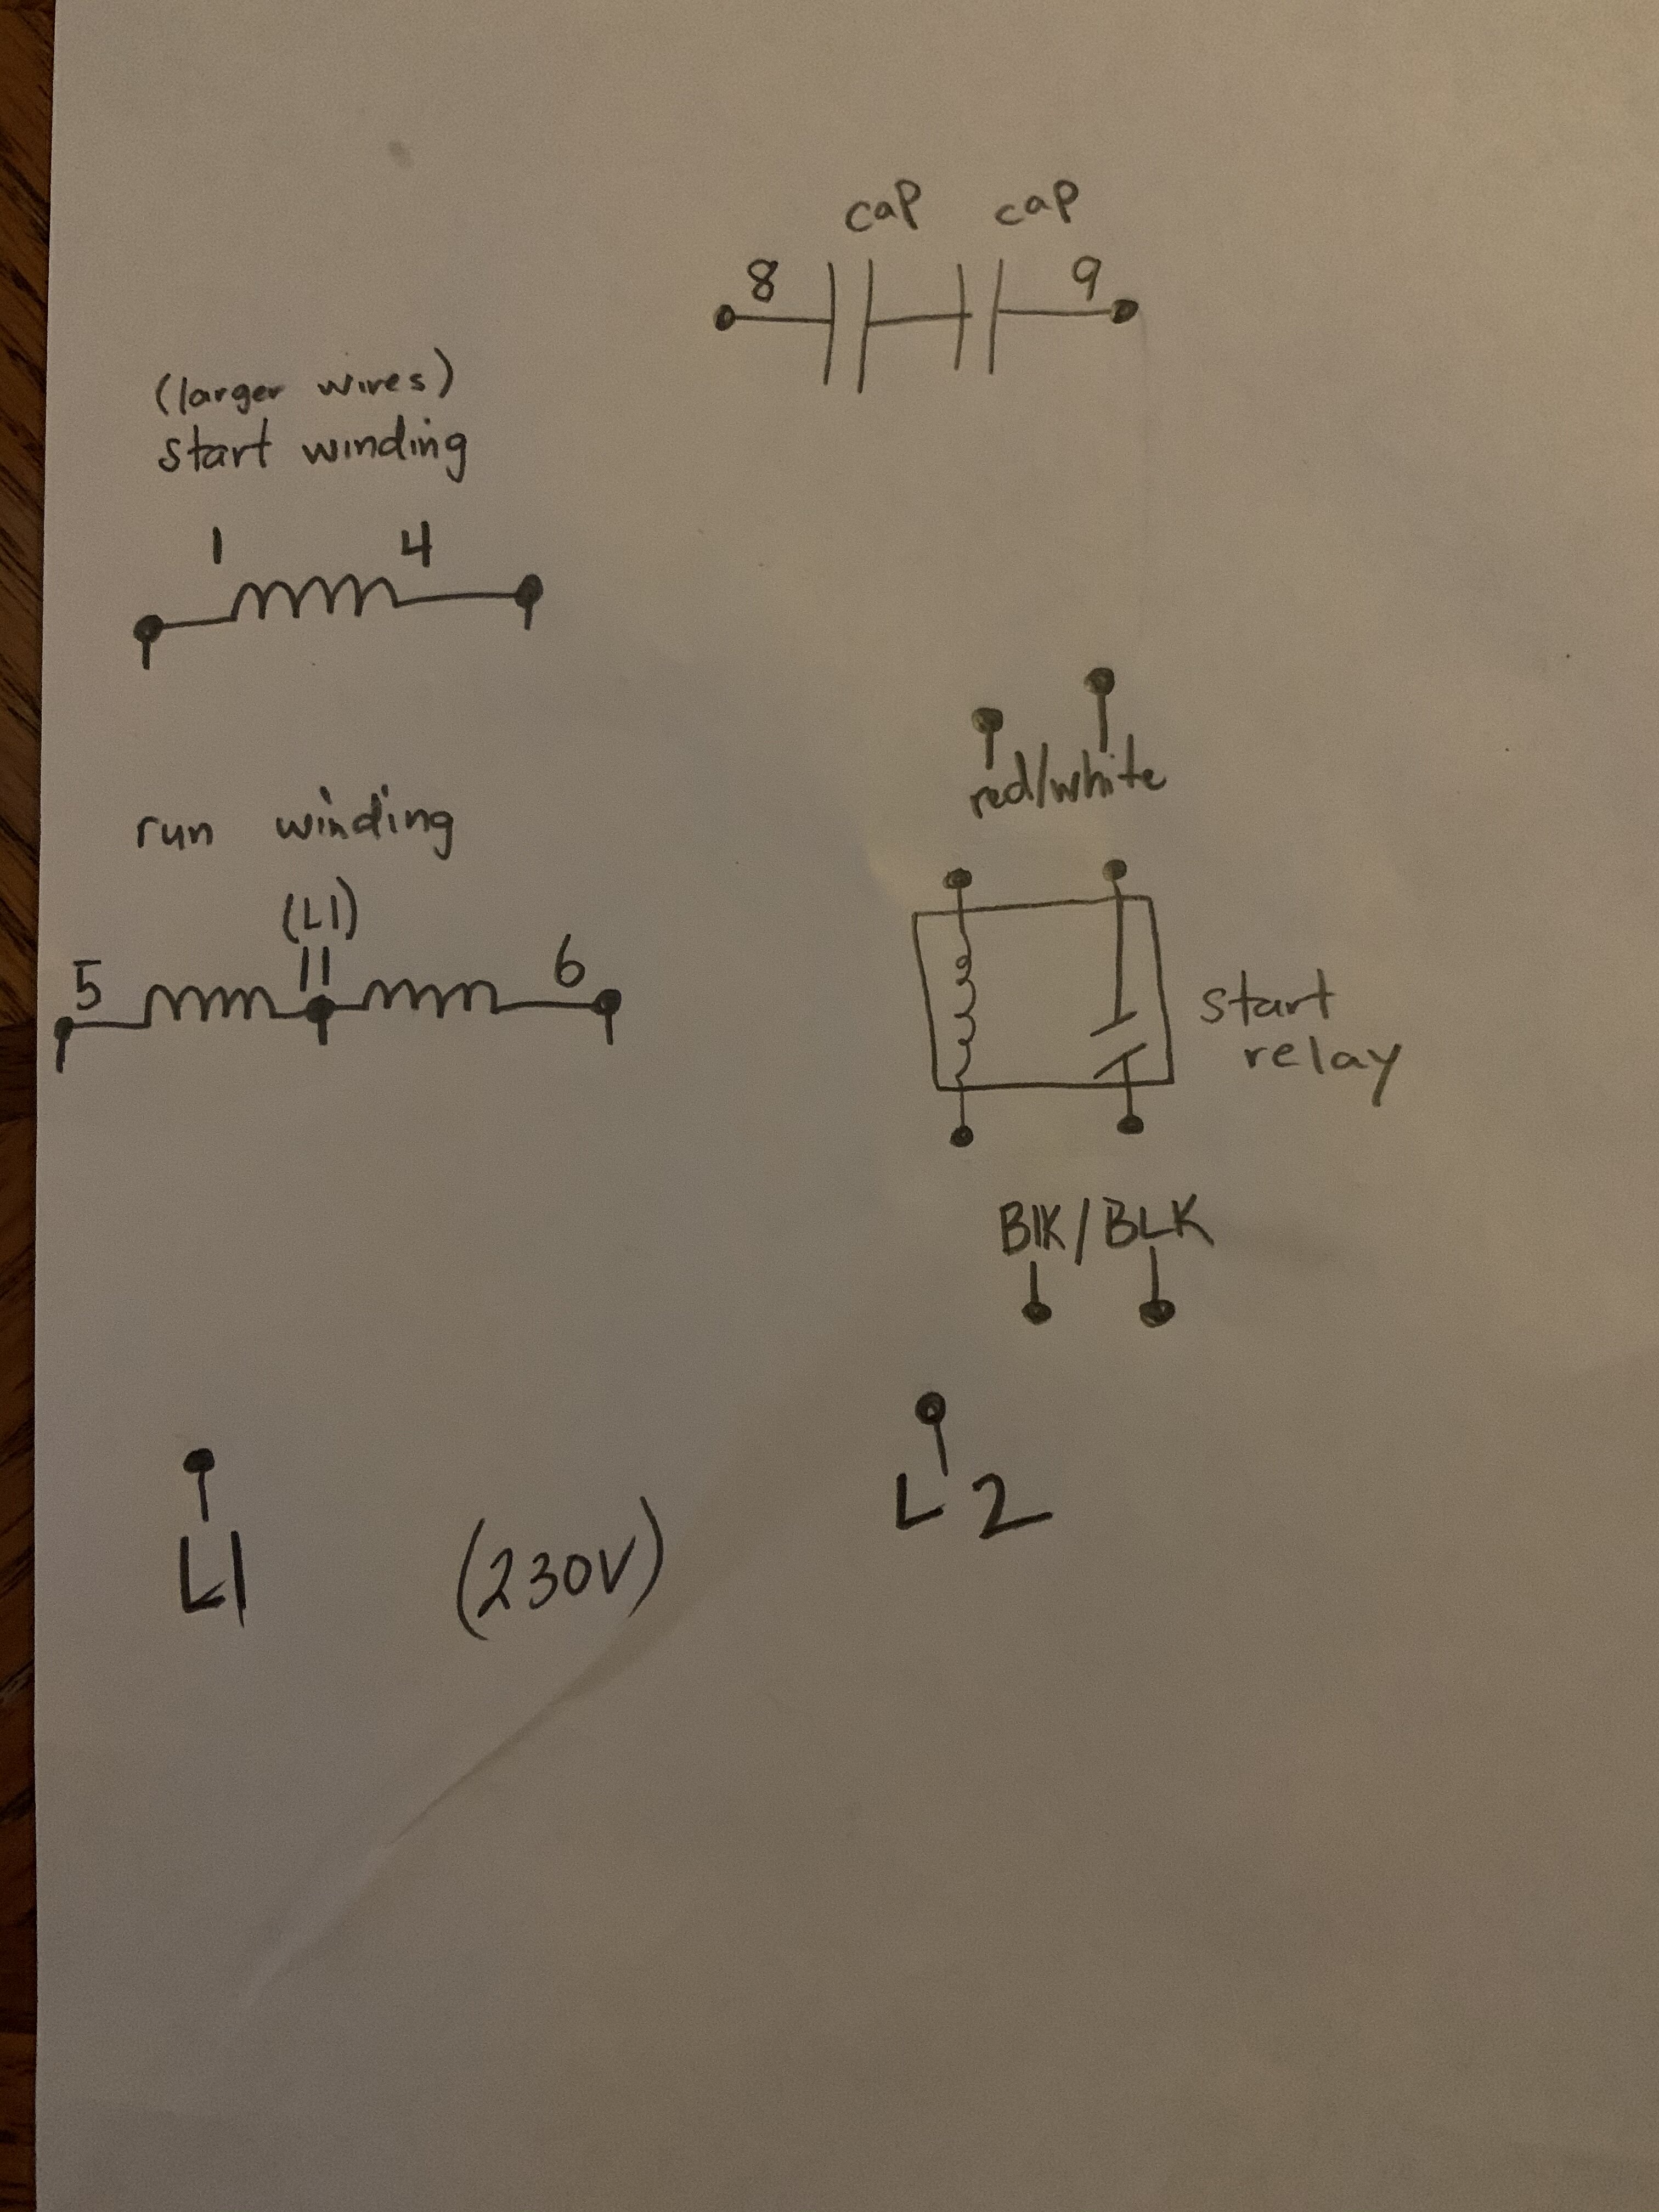 cap cap
8 9
(larger wires)
start winding
1 4
red/white
run winding
(L1)
5 11 6
start
relay
BlK/BLK
L2
L1 (230V)